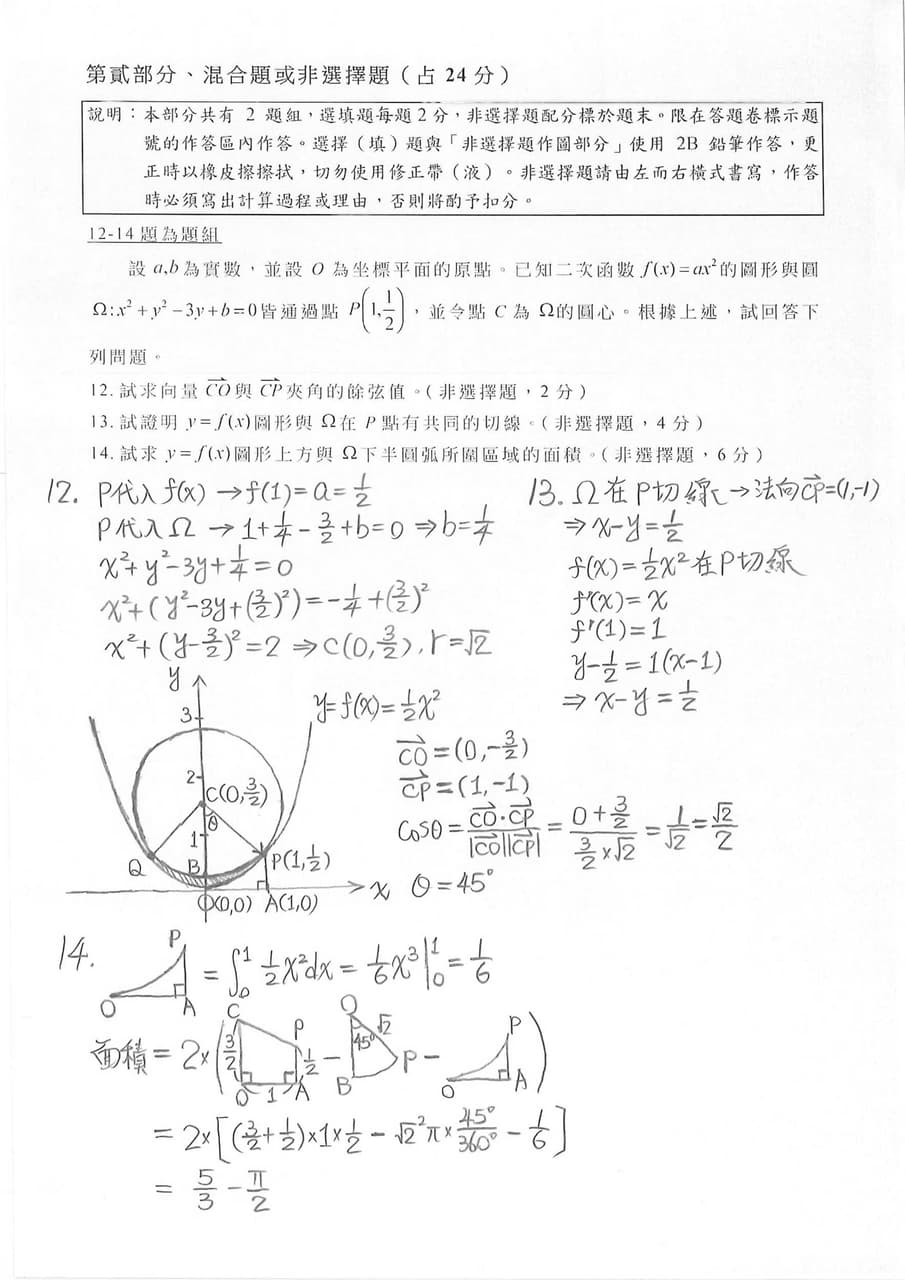 第貳部分、混合題或非選擇題（占 24 分）
說明：本部分共有 2 題組，選填題每題 2 分，非選擇題配分標於題末。限在答題卷標示題
號的作答區內作答。選擇（填）題與「非選擇題作圖部分」使用 2B 鉛筆作答，更
正時以橡皮擦擦拭，切勿使用修正帶（液）。非選擇題請由左而右橫式書寫，作答
時必須寫出計算過程或理由，否則將酌予扣分。
12-14 題為題組
設 a,b 為實數，並設 O 為坐標平面的原點。已知二次函數 f(x)=ax² 的圖形與圓
Ω:x²+y²−3y+b=0 皆通過點 P(1,1/2)，並令點 C 為 Ω的圓心。根據上述，試回答下
列問題。
12.試求向量 CO⃗ 與 CP⃗ 夾角的餘弦值。（非選擇題，2 分）
13.試證明 y=f(x)圖形與 Ω在 P 點有共同的切線。（非選擇題，4 分）
14.試求 y=f(x)圖形上方與 Ω下半圓弧所圍區域的面積。（非選擇題，6 分）
12. P代入 f(x) → f(1)=a=1/2
P代入 Ω → 1+1/4−3/2+b=0 ⇒ b=1/4
x²+y²−3y+1/4=0
x²+(y²−3y+(3/2)²)=−1/4+(3/2)²
x²+(y−3/2)²=2 ⇒ C(0,3/2), r=√2
13. Ω在P切線→法向CP⃗=(1,-1)
⇒ x−y=1/2
f(x)=1/2x²在P切線
f'(x)=x
f'(1)=1
y−1/2=1(x−1)
⇒ x−y=1/2
y
3
2
1
C(0,3/2)
θ
Q
B
P(1,1/2)
O(0,0)
A(1,0)
x
y=f(x)=1/2x²
CO⃗=(0,−3/2)
CP⃗=(1,−1)
cosθ=CO⃗·CP⃗/|CO⃗||CP⃗|=(0+3/2)/(3/2×√2)=1/√2=√2/2
θ=45°
14.
P
O
A
=∫₀¹ 1/2x²dx=1/6x³|₀¹=1/6
面積=2×(
C
3/2
P
1/2
O
1
A
−
O
45°
√2
B
P
−
P
O
A
)
=2×[(3/2+1/2)×1×1/2−√2²π×45°/360°−1/6]
=5/3−π/2